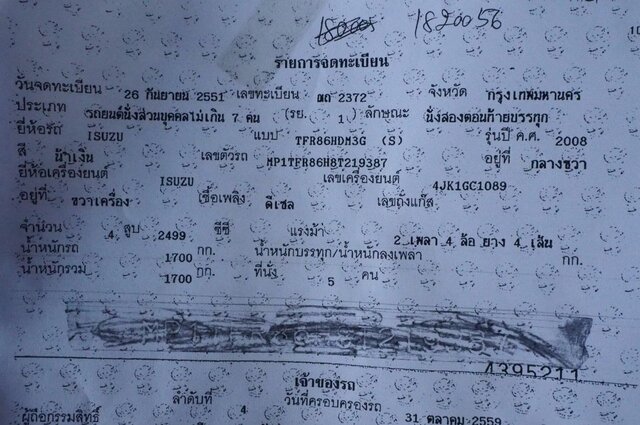 1820056
รายการจดทะเบียน
วันจดทะเบียน 26 กันยายน 2551 เลขทะเบียน ฌถ 2372 จังหวัด กรุงเทพมหานคร
ประเภท รถยนต์นั่งส่วนบุคคลไม่เกิน 7 คน (รย. 1) ลักษณะ นั่งสองตอนท้ายบรรทุก
ยี่ห้อรถ ISUZU แบบ TFR86HDM3G (S) รุ่นปี ค.ศ. 2008
สี น้ำเงิน เลขตัวรถ MP1TFR86H8T219387 อยู่ที่ กลางขวา
ยี่ห้อเครื่องยนต์ ISUZU เลขเครื่องยนต์ 4JK1GC1089
อยู่ที่ ขวาเครื่อง เชื้อเพลิง ดีเซล เลขถังแก๊ส
จำนวน 4 สูบ 2499 ซีซี แรงม้า 2 เพลา 4 ล้อ ยาง 4 เส้น
น้ำหนักรถ 1700 กก. น้ำหนักบรรทุก/น้ำหนักลงเพลา กก.
น้ำหนักรวม 1700 กก. ที่นั่ง 5 คน
4395211
เจ้าของรถ
ลำดับที่ 4 วันที่ครอบครองรถ 31 ตุลาคม 2559
ผู้ถือกรรมสิทธิ์